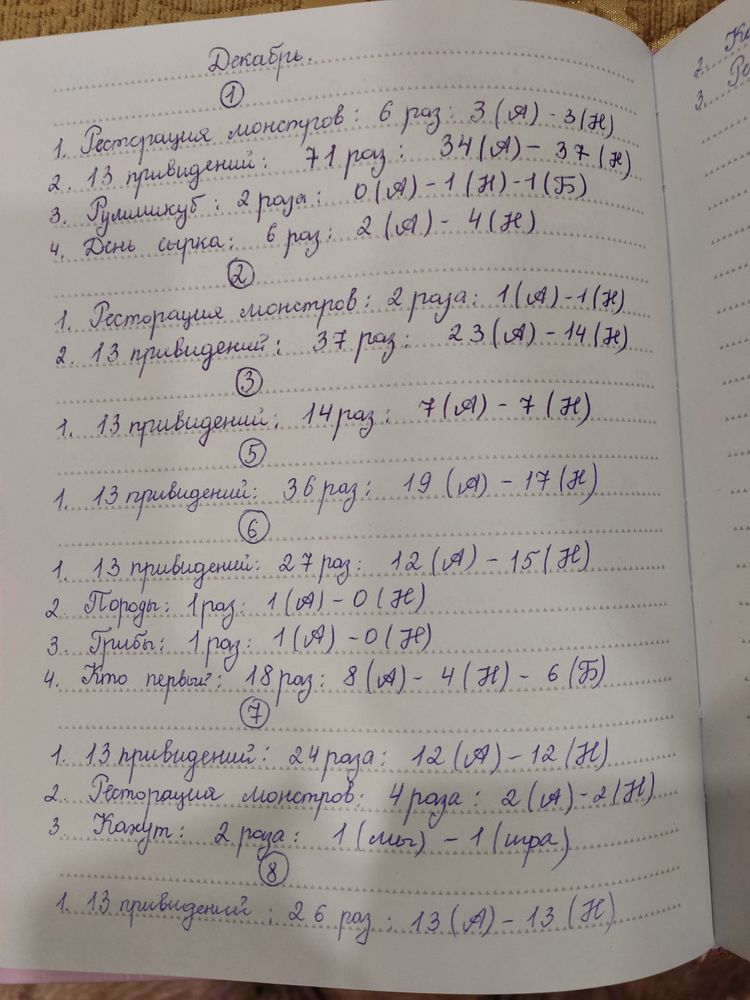 Декабрь.
1
1. Ресторация монстров: 6 раз: 3 (А) - 3 (Н)
2. 13 привидений: 71 раз: 34 (А) - 37 (Н)
3. Руммикуб: 2 раза: 0 (А) - 1 (Н) - 1 (Б)
4. День сырка: 6 раз: 2 (А) - 4 (Н)
2
1. Ресторация монстров: 2 раза: 1 (А) - 1 (Н)
2. 13 привидений: 37 раз: 23 (А) - 14 (Н)
3
1. 13 привидений: 14 раз: 7 (А) - 7 (Н)
5
1. 13 привидений: 36 раз: 19 (А) - 17 (Н)
6
1. 13 привидений: 27 раз: 12 (А) - 15 (Н)
2. Породы: 1 раз: 1 (А) - 0 (Н)
3. Грибы: 1 раз: 1 (А) - 0 (Н)
4. Кто первый: 18 раз: 8 (А) - 4 (Н) - 6 (Б)
7
1. 13 привидений: 24 раза: 12 (А) - 12 (Н)
2. Ресторация монстров: 4 раза: 2 (А) - 2 (Н)
3. Кахут: 2 раза: 1 (мы) - 1 (игра)
8
1. 13 привидений: 26 раз: 13 (А) - 13 (Н)
2.
3.